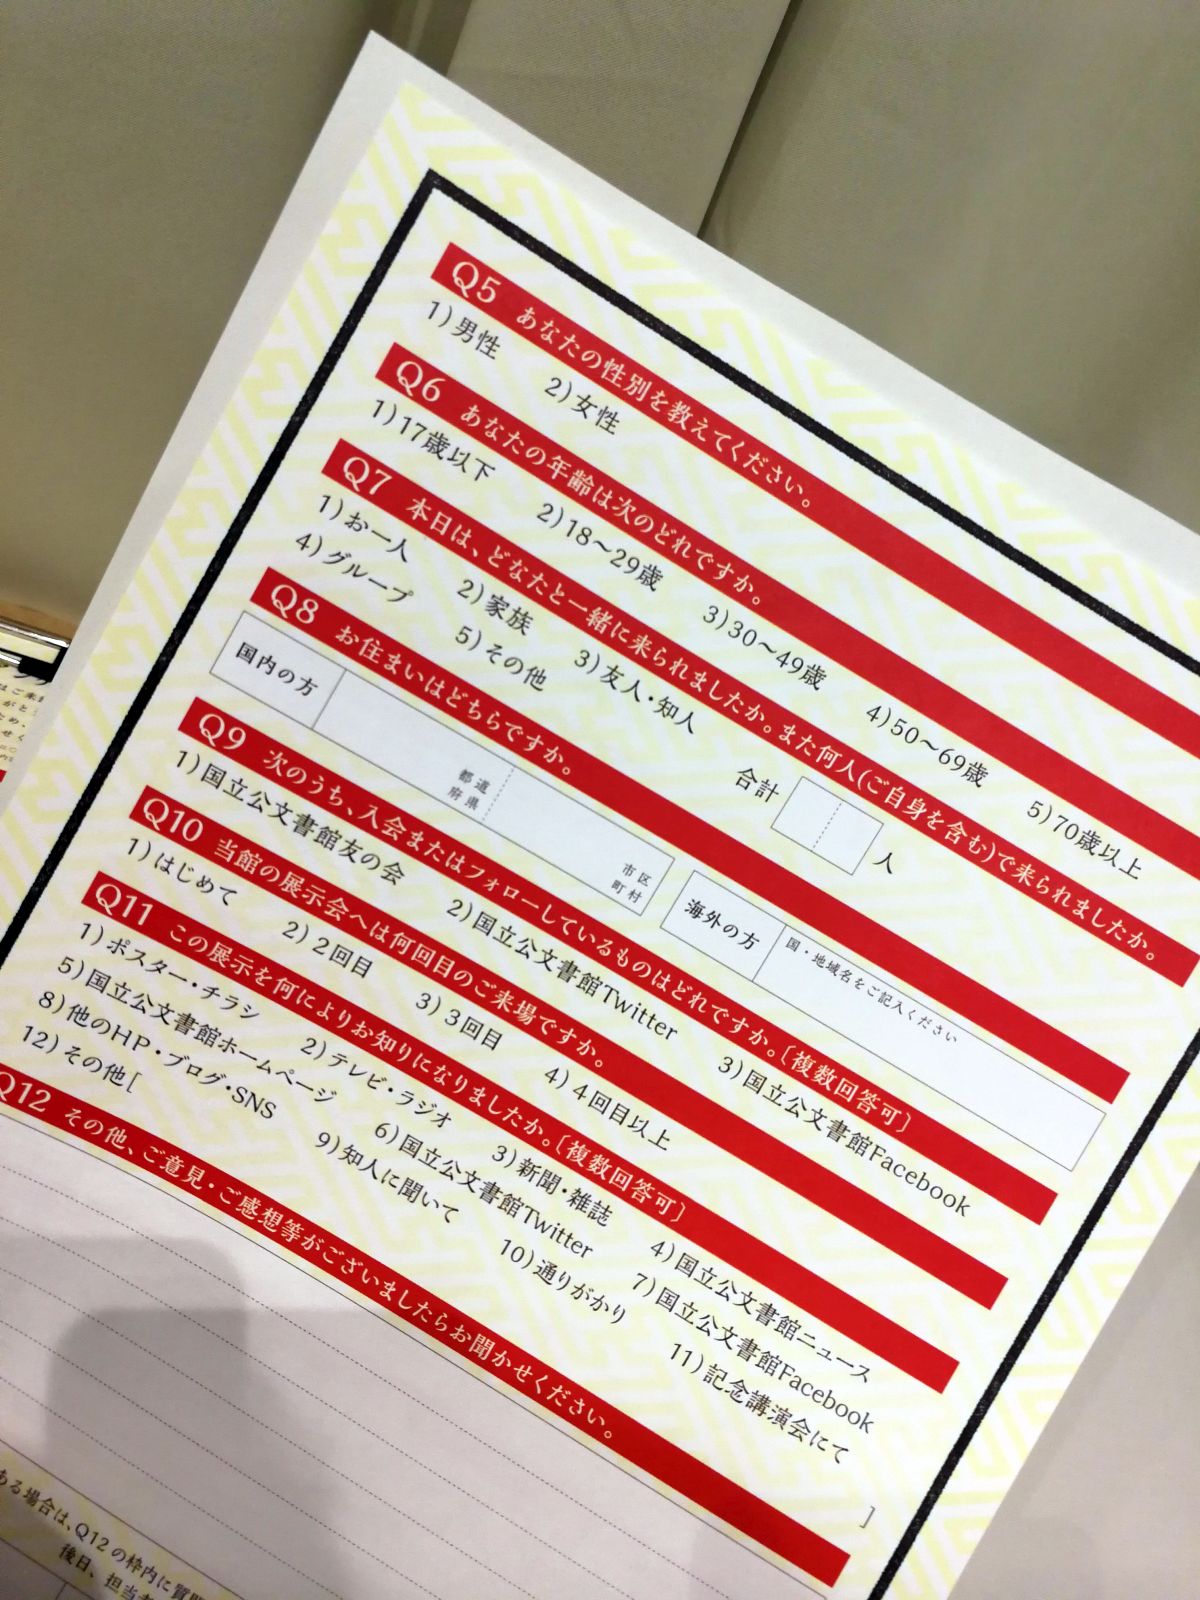 Q5 あなたの性別を教えてください。
1)男性 2)女性
Q6 あなたの年齢は次のどれですか。
1)17歳以下 2)18〜29歳 3)30〜49歳 4)50〜69歳 5)70歳以上
Q7 本日は、どなたと一緒に来られましたか。また何人(ご自身を含む)で来られましたか。
1)お一人 2)家族 3)友人・知人
4)グループ 5)その他 合計 人
Q8 お住まいはどちらですか。
国内の方 都道府県 市区町村 海外の方 国・地域名をご記入ください
Q9 次のうち、入会またはフォローしているものはどれですか。〔複数回答可〕
1)国立公文書館友の会 2)国立公文書館Twitter 3)国立公文書館Facebook
Q10 当館の展示会へは何回目のご来場ですか。
1)はじめて 2)2回目 3)3回目 4)4回目以上
Q11 この展示を何によりお知りになりましたか。〔複数回答可〕
1)ポスター・チラシ 2)テレビ・ラジオ 3)新聞・雑誌 4)国立公文書館ニュース
5)国立公文書館ホームページ 6)国立公文書館Twitter 7)国立公文書館Facebook
8)他のHP・ブログ・SNS 9)知人に聞いて 10)通りがかり 11)記念講演会にて
12)その他[ ]
Q12 その他、ご意見・ご感想等がございましたらお聞かせください。
ある場合は、Q12の枠内に質問
後日、担当者